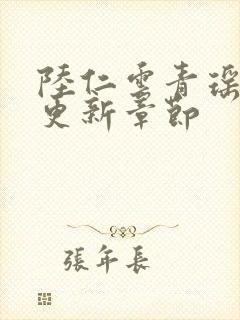 陸仁雲青瑶
更新章節
張年長